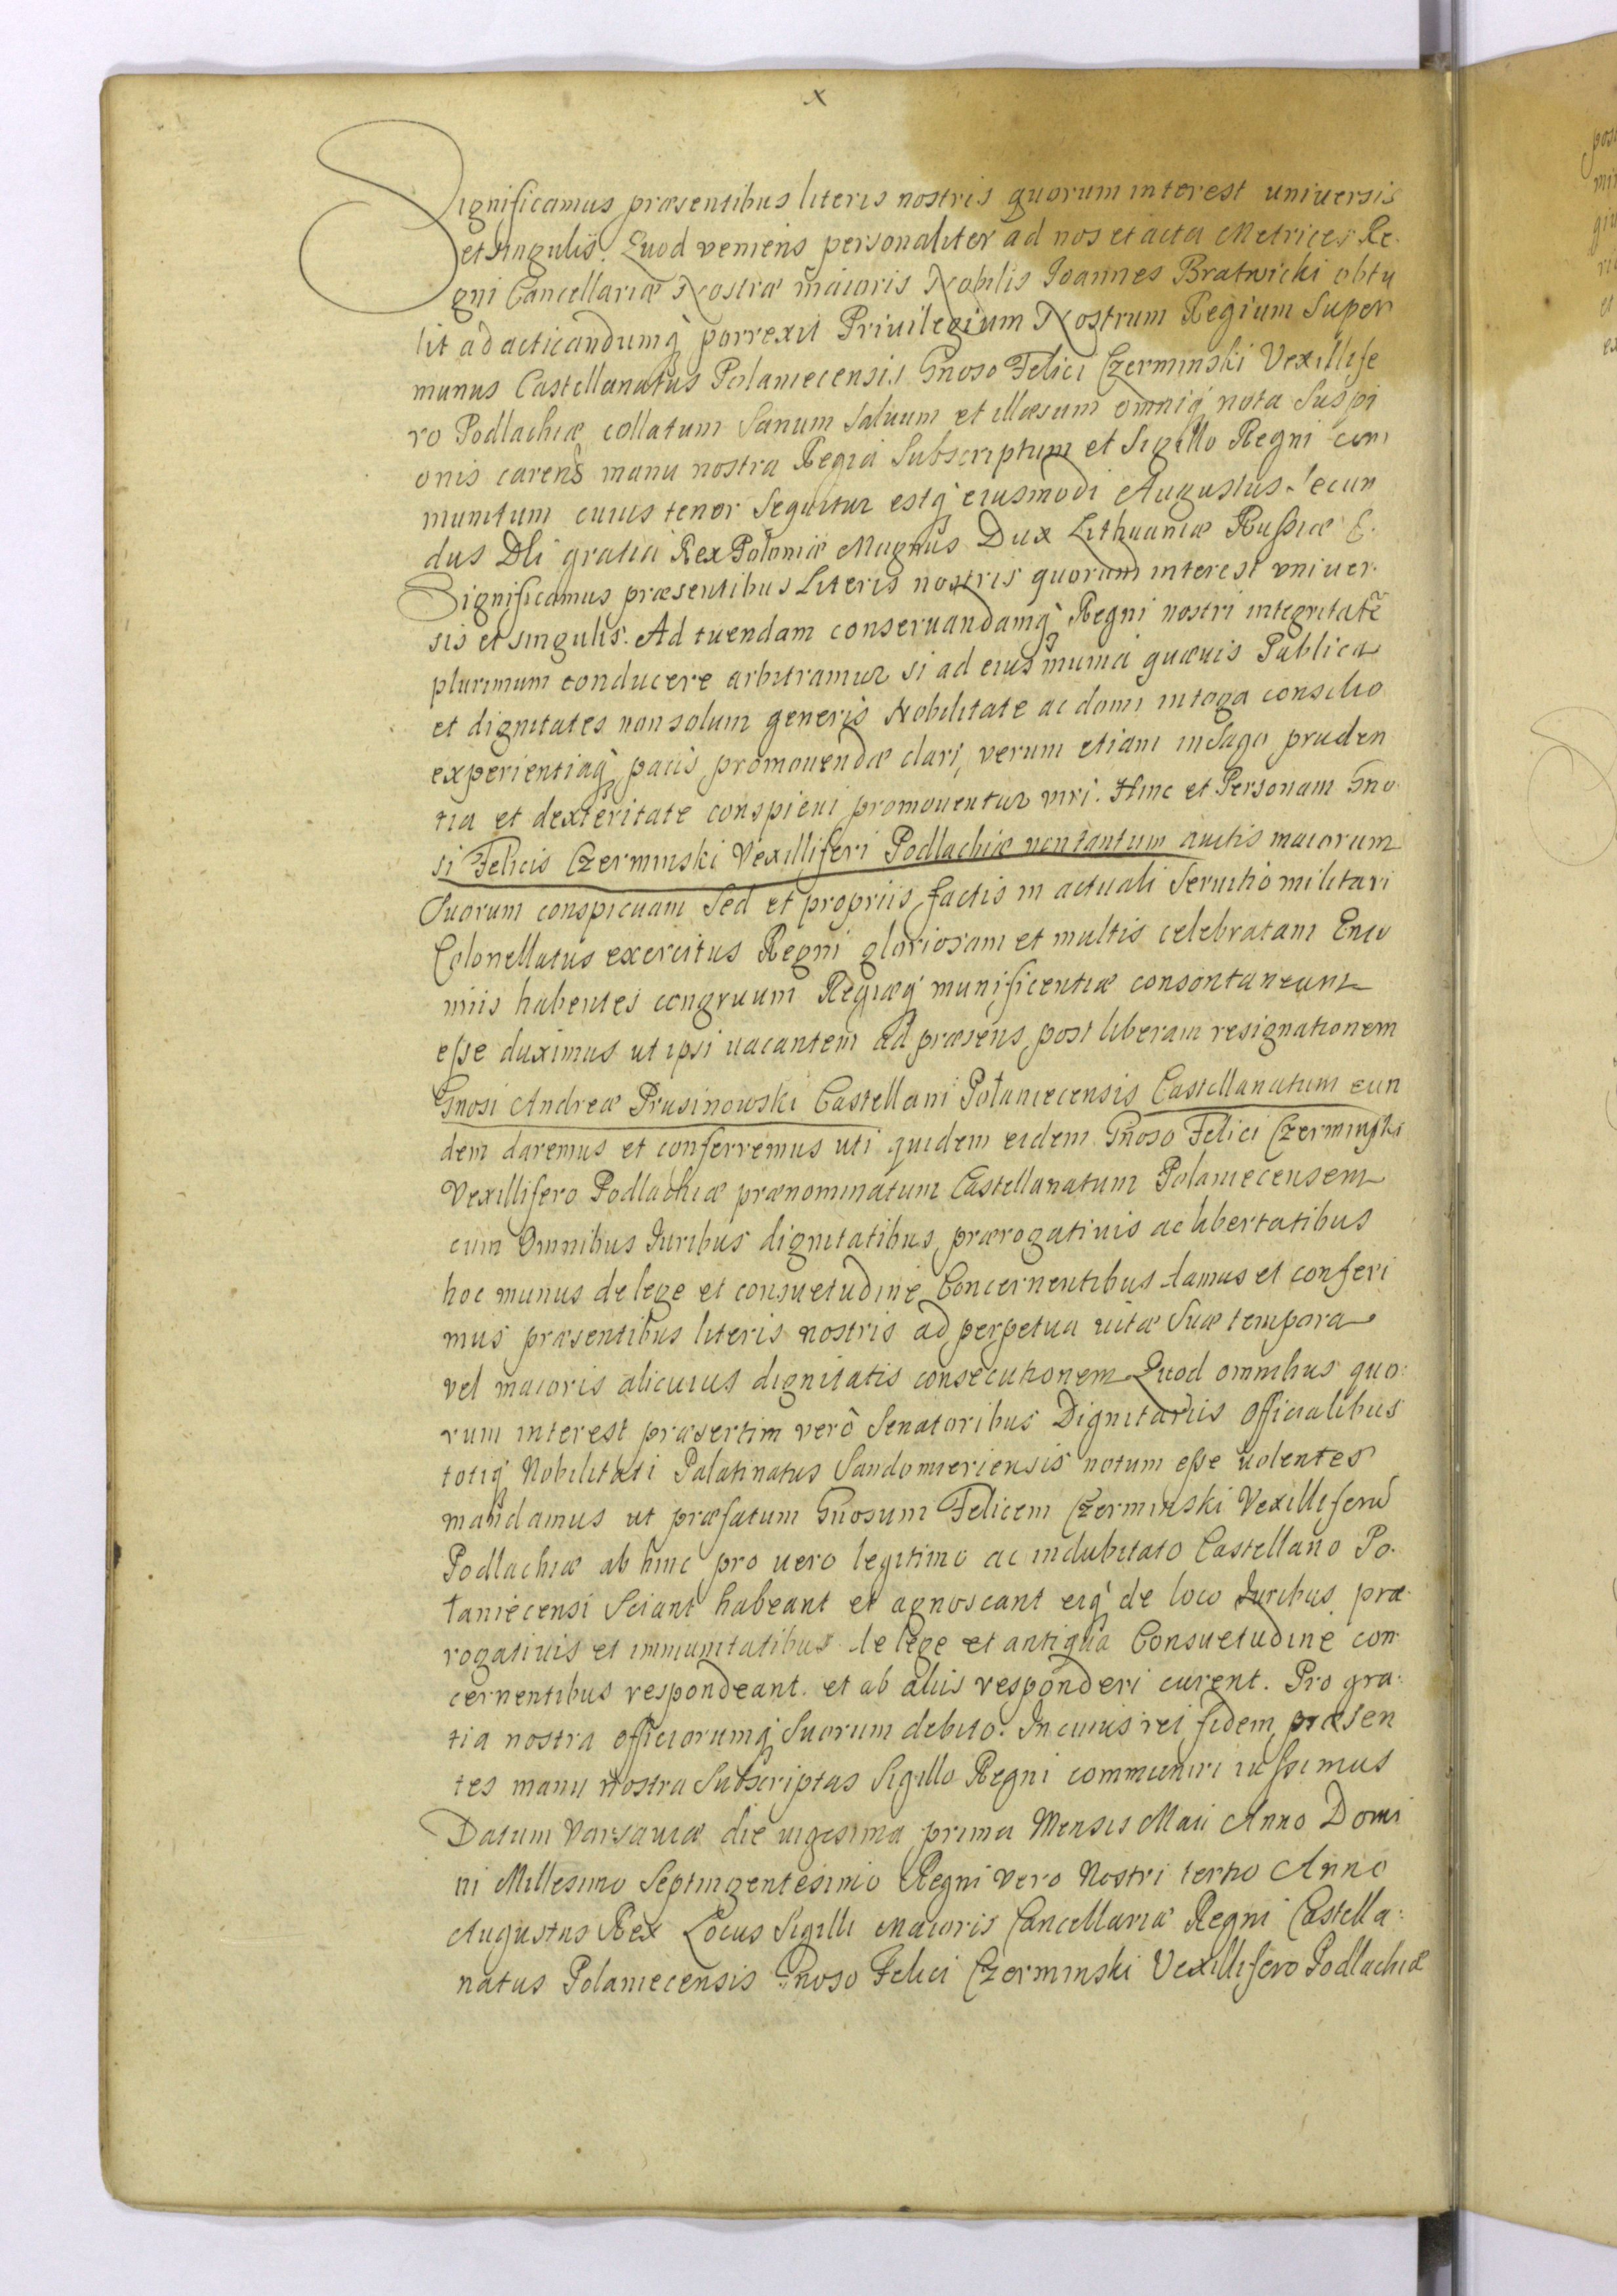 x
Significamus præsentibus literis nostris quorum interest universis
et singulis. Quod veniens personaliter ad nos et acta Metrices Re-
gni Cancellariæ Nostræ maioris Nobilis Ioannes Bratwicki obtu
lit ad acticandumq̀ porrexit Privilegium Nostrum Regium super
munus Castellanatus Polaniecensis Gnoso Felici Czerminski Vexillife
ro Podlachiæ collatum Sanum Saluum et illæsum omniq̀ nota Suspi
onis carens manu nostra Regia Subscriptum et Sigillo Regni com
munitum cuius tenor Sequitur estq̀ eiusmodi Augustus Secun
dus Dei gratia Rex Poloniæ Magnus Dux Lithuaniæ Russiæ &.
Significamus præsentibus Literis nostris quorum interest vniver.
sis et singulis. Ad tuendam conseruandamq̀ Regni nostri integritatē
plurimum conducere arbitramur si ad eius munia quævis Publica
et dignitates non solum generis Nobilitate ac domi in toga consilio
experientiaq̀ pacis promouendæ clari, verum etiam in Sago pruden
tia et dexteritate conspicui promouentur viri. Hinc et Personam Gno
si Felicis Czerminski Vexilliferi Podlachiæ non tantum auitis maiorum
Suorum conspicuam Sed et propriis factis in actuali Seruitio militari
Colonellatus exercitus Regni gloriosam et multis celebratam Enco
miis habentes congruum Regiæq̀ munificentiæ consontaneum
esse duximus ut ipsi uacantem ad præsens post liberam resignationem
Gnosi Andreæ Prusinowski Castellani Połaniecensis Castellanatum eun
dem daremus et conferremus uti quidem eidem Gnoso Felici Czerminski
Vexillifero Podlachiæ prænominatum Castellanatum Polaniecensem
cum Omnibus Iuribus dignitatibus prærogatiuis ac libertatibus
hoc munus de lege et consuetudine Concernentibus damus et conferi
mus præsentibus literis nostris ad perpetua uitæ Suæ tempora
vel maioris alicuius dignitatis consecutionem Quod omnibus quo:
rum interest præsertim verò Senatoribus Dignitariis Officialibus
totiq̀ Nobilitati Palatinatus Sandomieriensis notum esse uolentes
mandamus ut præfatum Gnosum Felicem Czerminski Vexilliferū
Podlachiæ ab hinc pro uero legitimo ac indubitato Castellano Po-
łaniecensi Sciant habeant et agnoscant eiq̀ de loco Iuribus præ-
rogatiuis et immunitatibus de lege et antiqua Consuetudine con-
cernentibus respondeant et ab aliis responderi curent. Pro gra:
tia nostra officiorumq̀ Suorum debito. In cuius rei fidem præsen
tes manu nostra Subscriptas Sigillo Regni communiri iussimus
Datum Varsauiæ die uigesima prima Mensis Maii Anno Domi
ni Millesimo Septingentesimo Regni vero Nostri tertio Anno
Augustus Rex Locus Sigilli Maioris Cancellariæ Regni Castella:
natus Polaniecensis Gnoso Felici Czerminski Vexillifero Podlachiæ